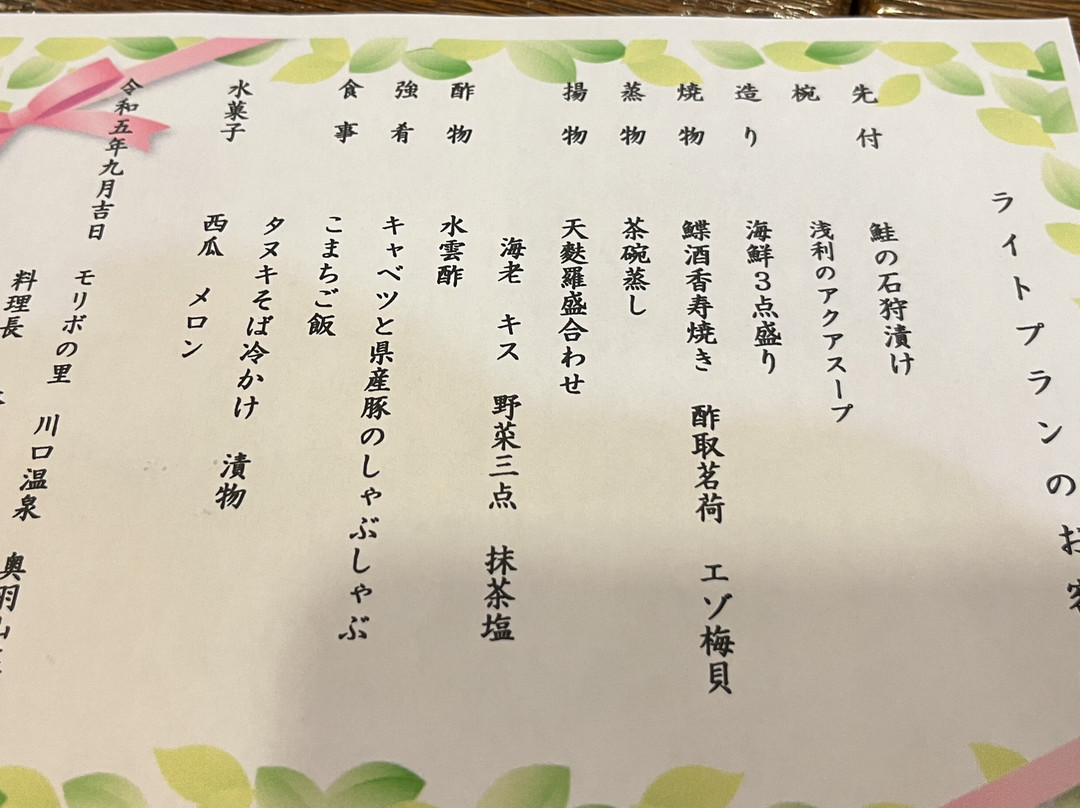 ライトプランのお客
先付
鮭の石狩漬け
椀
浅利のアクアスープ
造り
海鮮3点盛り
焼物
鰈酒香寿焼き 酢取茗荷 エゾ梅貝
蒸物
茶碗蒸し
揚物
天麩羅盛合わせ
海老 キス 野菜三点 抹茶塩
酢物
水雲酢
強肴
キャベツと県産豚のしゃぶしゃぶ
食事
こまちご飯
タヌキそば冷かけ 漬物
水菓子
西瓜 メロン
令和五年九月吉日
モリボの里 川口温泉 奥羽山
料理長